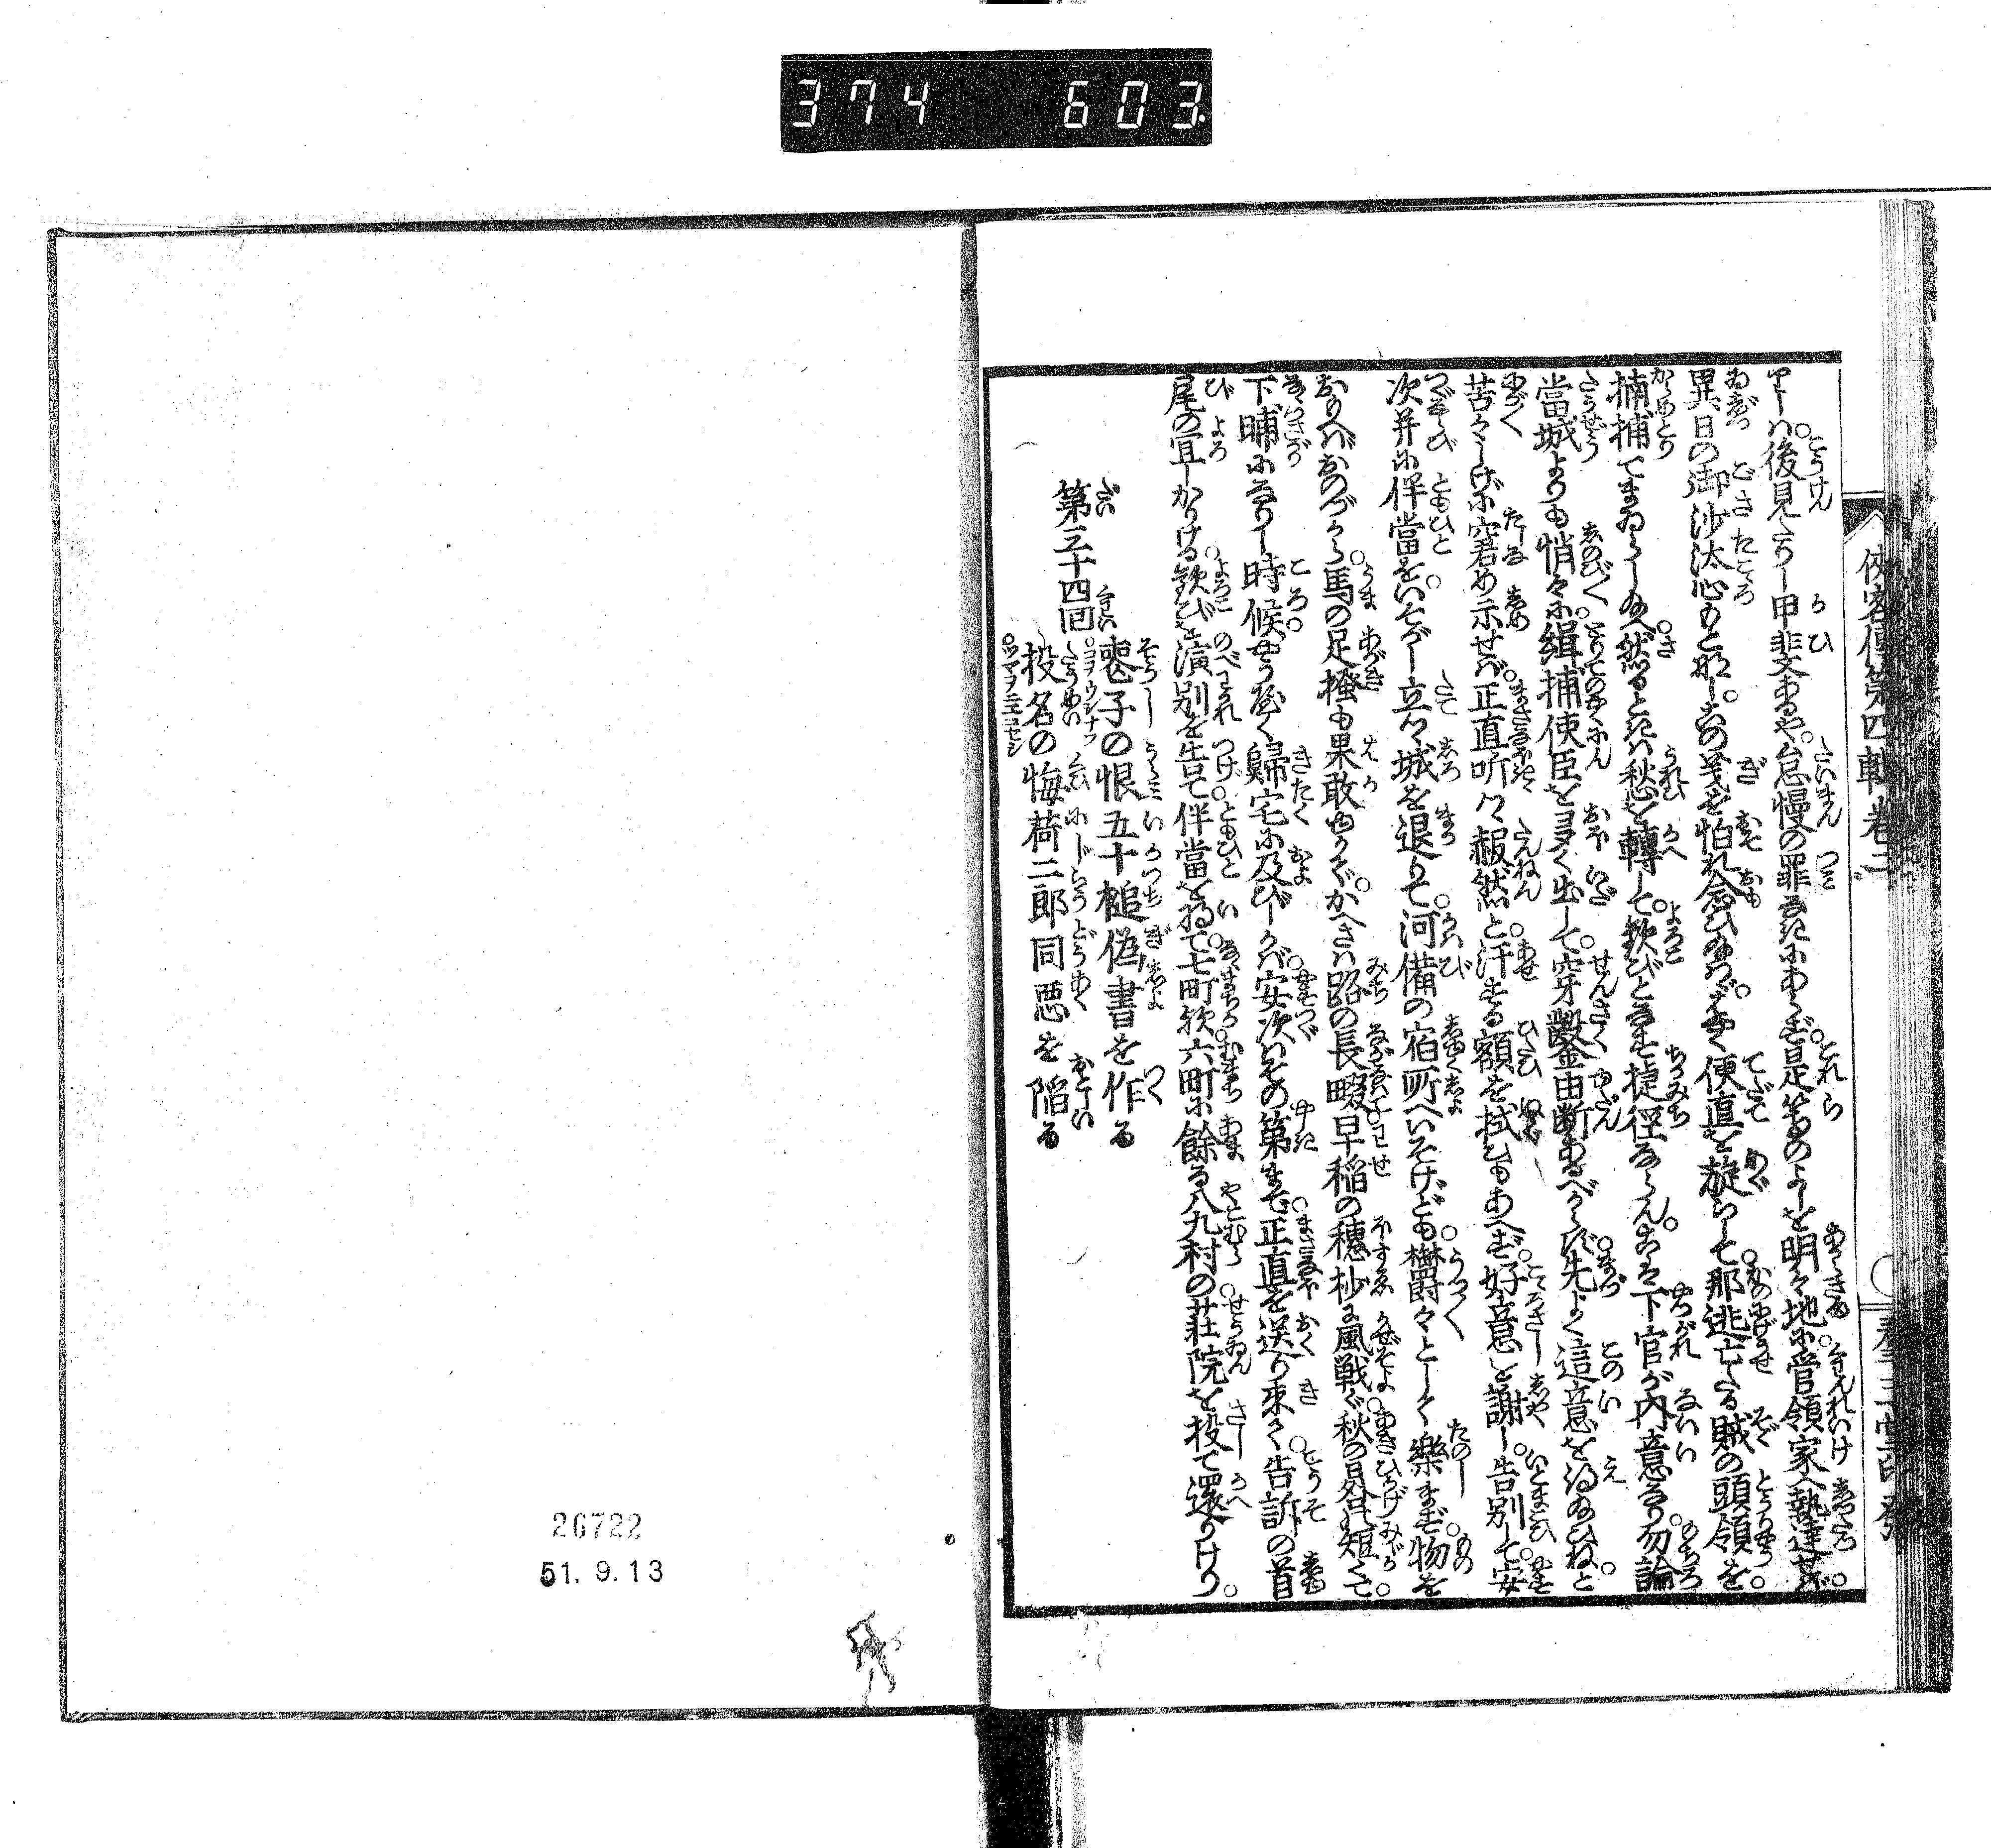 374 603
侠客傳第四輯巻二
てハ。後見たりし甲斐あるや。怠慢の罪なきにあらず。是等のよしを明々地に。管領家へ執達せバ。
異日の御沙汰心もとなし。この義を怕れ念ひ給ハヾ。はやく便直を旋らして。那逃亡たる賊の頭領を。
捕捕てまゐらし給へ。然るときハ愁を轉して。歓びとなす捷徑ならん。こは下官が内意なり。勿論
當城よりも悄々に。緝捕使臣を夛く出して。穿鑿由断あるべからず。先よく這意を得給ひねと。
苦々しげに窘め示せバ。正直听々赧然と。汗する額を拭ひもあへず。好意を謝し。告別して。安
次并に伴當を。いそがし立々城を退りて。河備の宿所へいそげども。欝々として樂まず。物を
おもへバおのづから。馬の足掻も果敢ゆかず。かへさハ路の長畷。早稲の穂抄に風戦ぐ。秋の晷短くて。
下晡になりし時候。やうやく歸宅に及びしかバ。安次ハその第まで。正直を送り来て。告訴の首
尾の宜しかりける。歓びを演別を告て。伴當を將て。七町欤。六町に餘る八九村の。荘院を投て還りけり。
第三十四回
喪子の恨五十槌偽書を作る
コヲウシナフ
投名の悔荷二郎同悪を陥る
26722
51.9.13